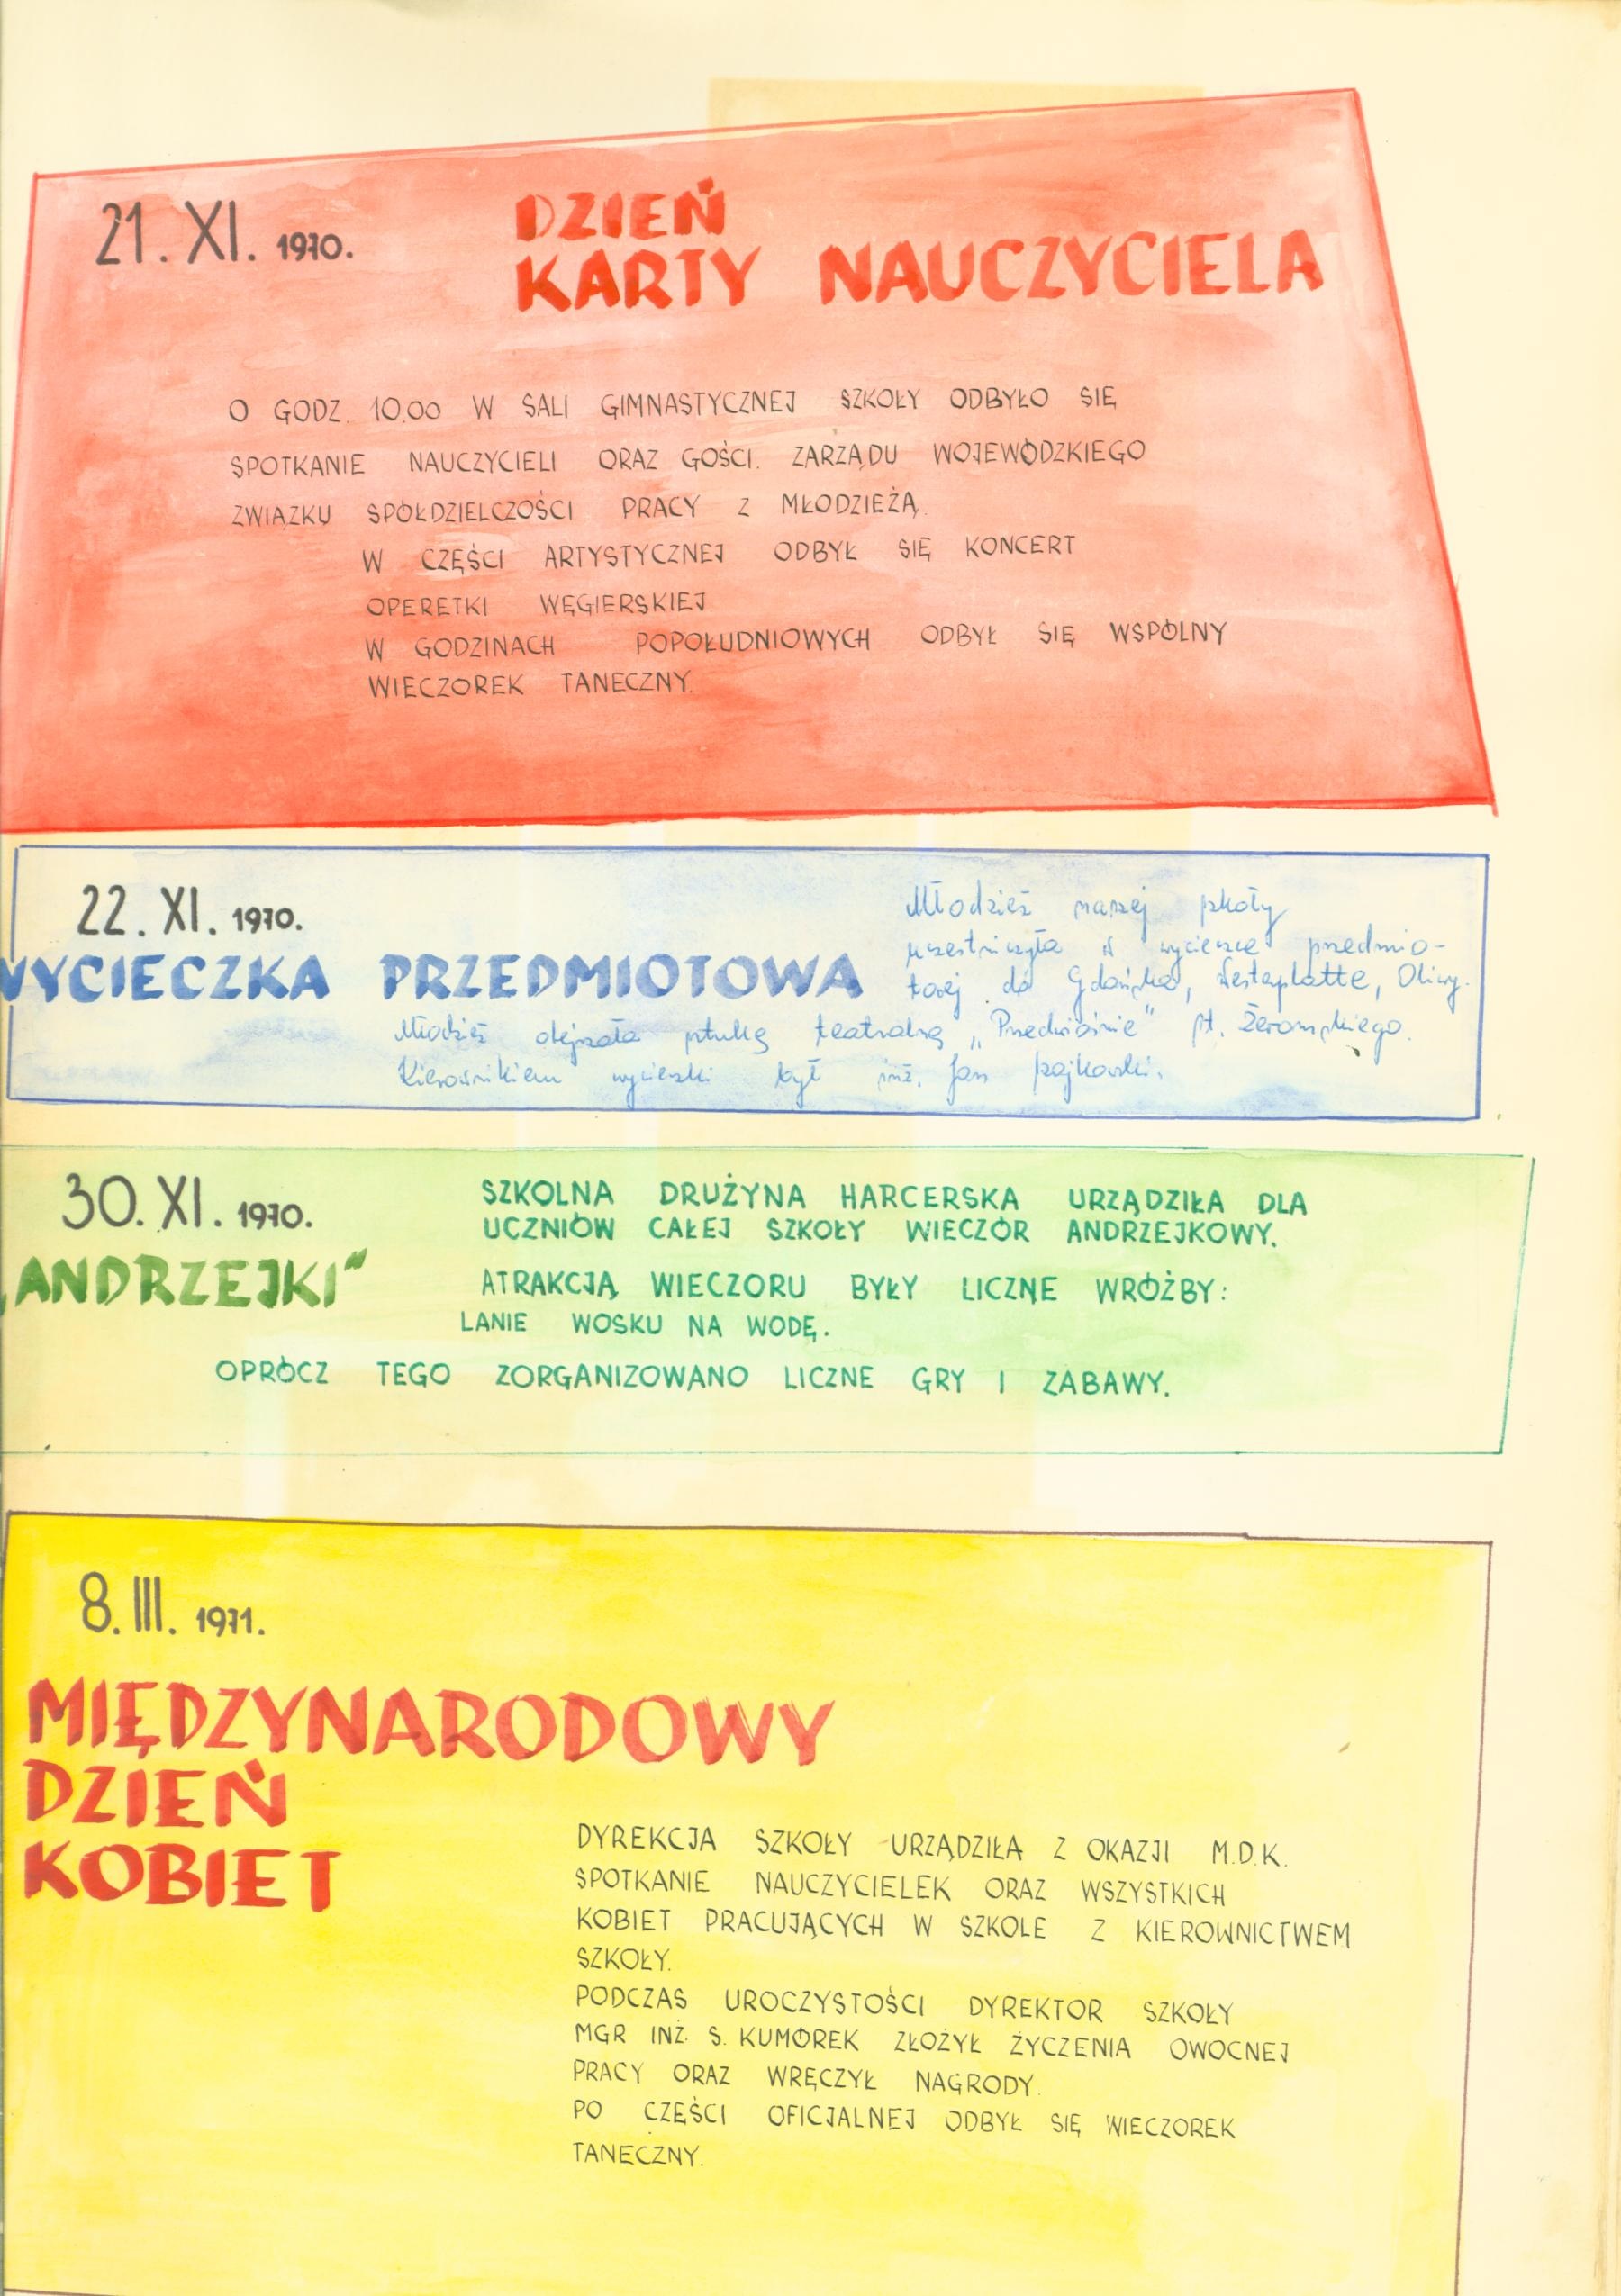 21. XI. 1970.
DZIEŃ
KARTY NAUCZYCIELA
O GODZ. 10.00 W SALI GIMNASTYCZNEJ SZKOŁY ODBYŁO SIĘ
SPOTKANIE NAUCZYCIELI ORAZ GOŚCI. ZARZĄDU WOJEWÓDZKIEGO
ZWIĄZKU SPÓŁDZIELCZOŚCI PRACY Z MŁODZIEŻĄ.
W CZĘŚCI ARTYSTYCZNEJ ODBYŁ SIĘ KONCERT
OPERETKI WĘGIERSKIEJ
W GODZINACH POPOŁUDNIOWYCH ODBYŁ SIĘ WSPÓLNY
WIECZOREK TANECZNY.
22. XI. 1970.
WYCIECZKA PRZEDMIOTOWA
Młodzież naszej szkoły
uczestniczyła w wycieczce przedmio-
towej do Gdańska, Westerplatte, Oliwy.
Młodzież obejrzała sztukę teatralną „Przedwiośnie" St. Żeromskiego.
Kierownikiem wycieczki był inż. Jan
30. XI. 1970.
„ANDRZEJKI"
SZKOLNA DRUŻYNA HARCERSKA URZĄDZIŁA DLA
UCZNIÓW CAŁEJ SZKOŁY WIECZÓR ANDRZEJKOWY.
ATRAKCJĄ WIECZORU BYŁY LICZNE WRÓŻBY:
LANIE WOSKU NA WODĘ.
OPRÓCZ TEGO ZORGANIZOWANO LICZNE GRY I ZABAWY.
8. III. 1971.
MIĘDZYNARODOWY
DZIEŃ
KOBIET
DYREKCJA SZKOŁY URZĄDZIŁA Z OKAZJI M.D.K.
SPOTKANIE NAUCZYCIELEK ORAZ WSZYSTKICH
KOBIET PRACUJĄCYCH W SZKOLE Z KIEROWNICTWEM
SZKOŁY.
PODCZAS UROCZYSTOŚCI DYREKTOR SZKOŁY
MGR INŻ. S. KUMOREK ZŁOŻYŁ ŻYCZENIA OWOCNEJ
PRACY ORAZ WRĘCZYŁ NAGRODY.
PO CZĘŚCI OFICJALNEJ ODBYŁ SIĘ WIECZOREK
TANECZNY.